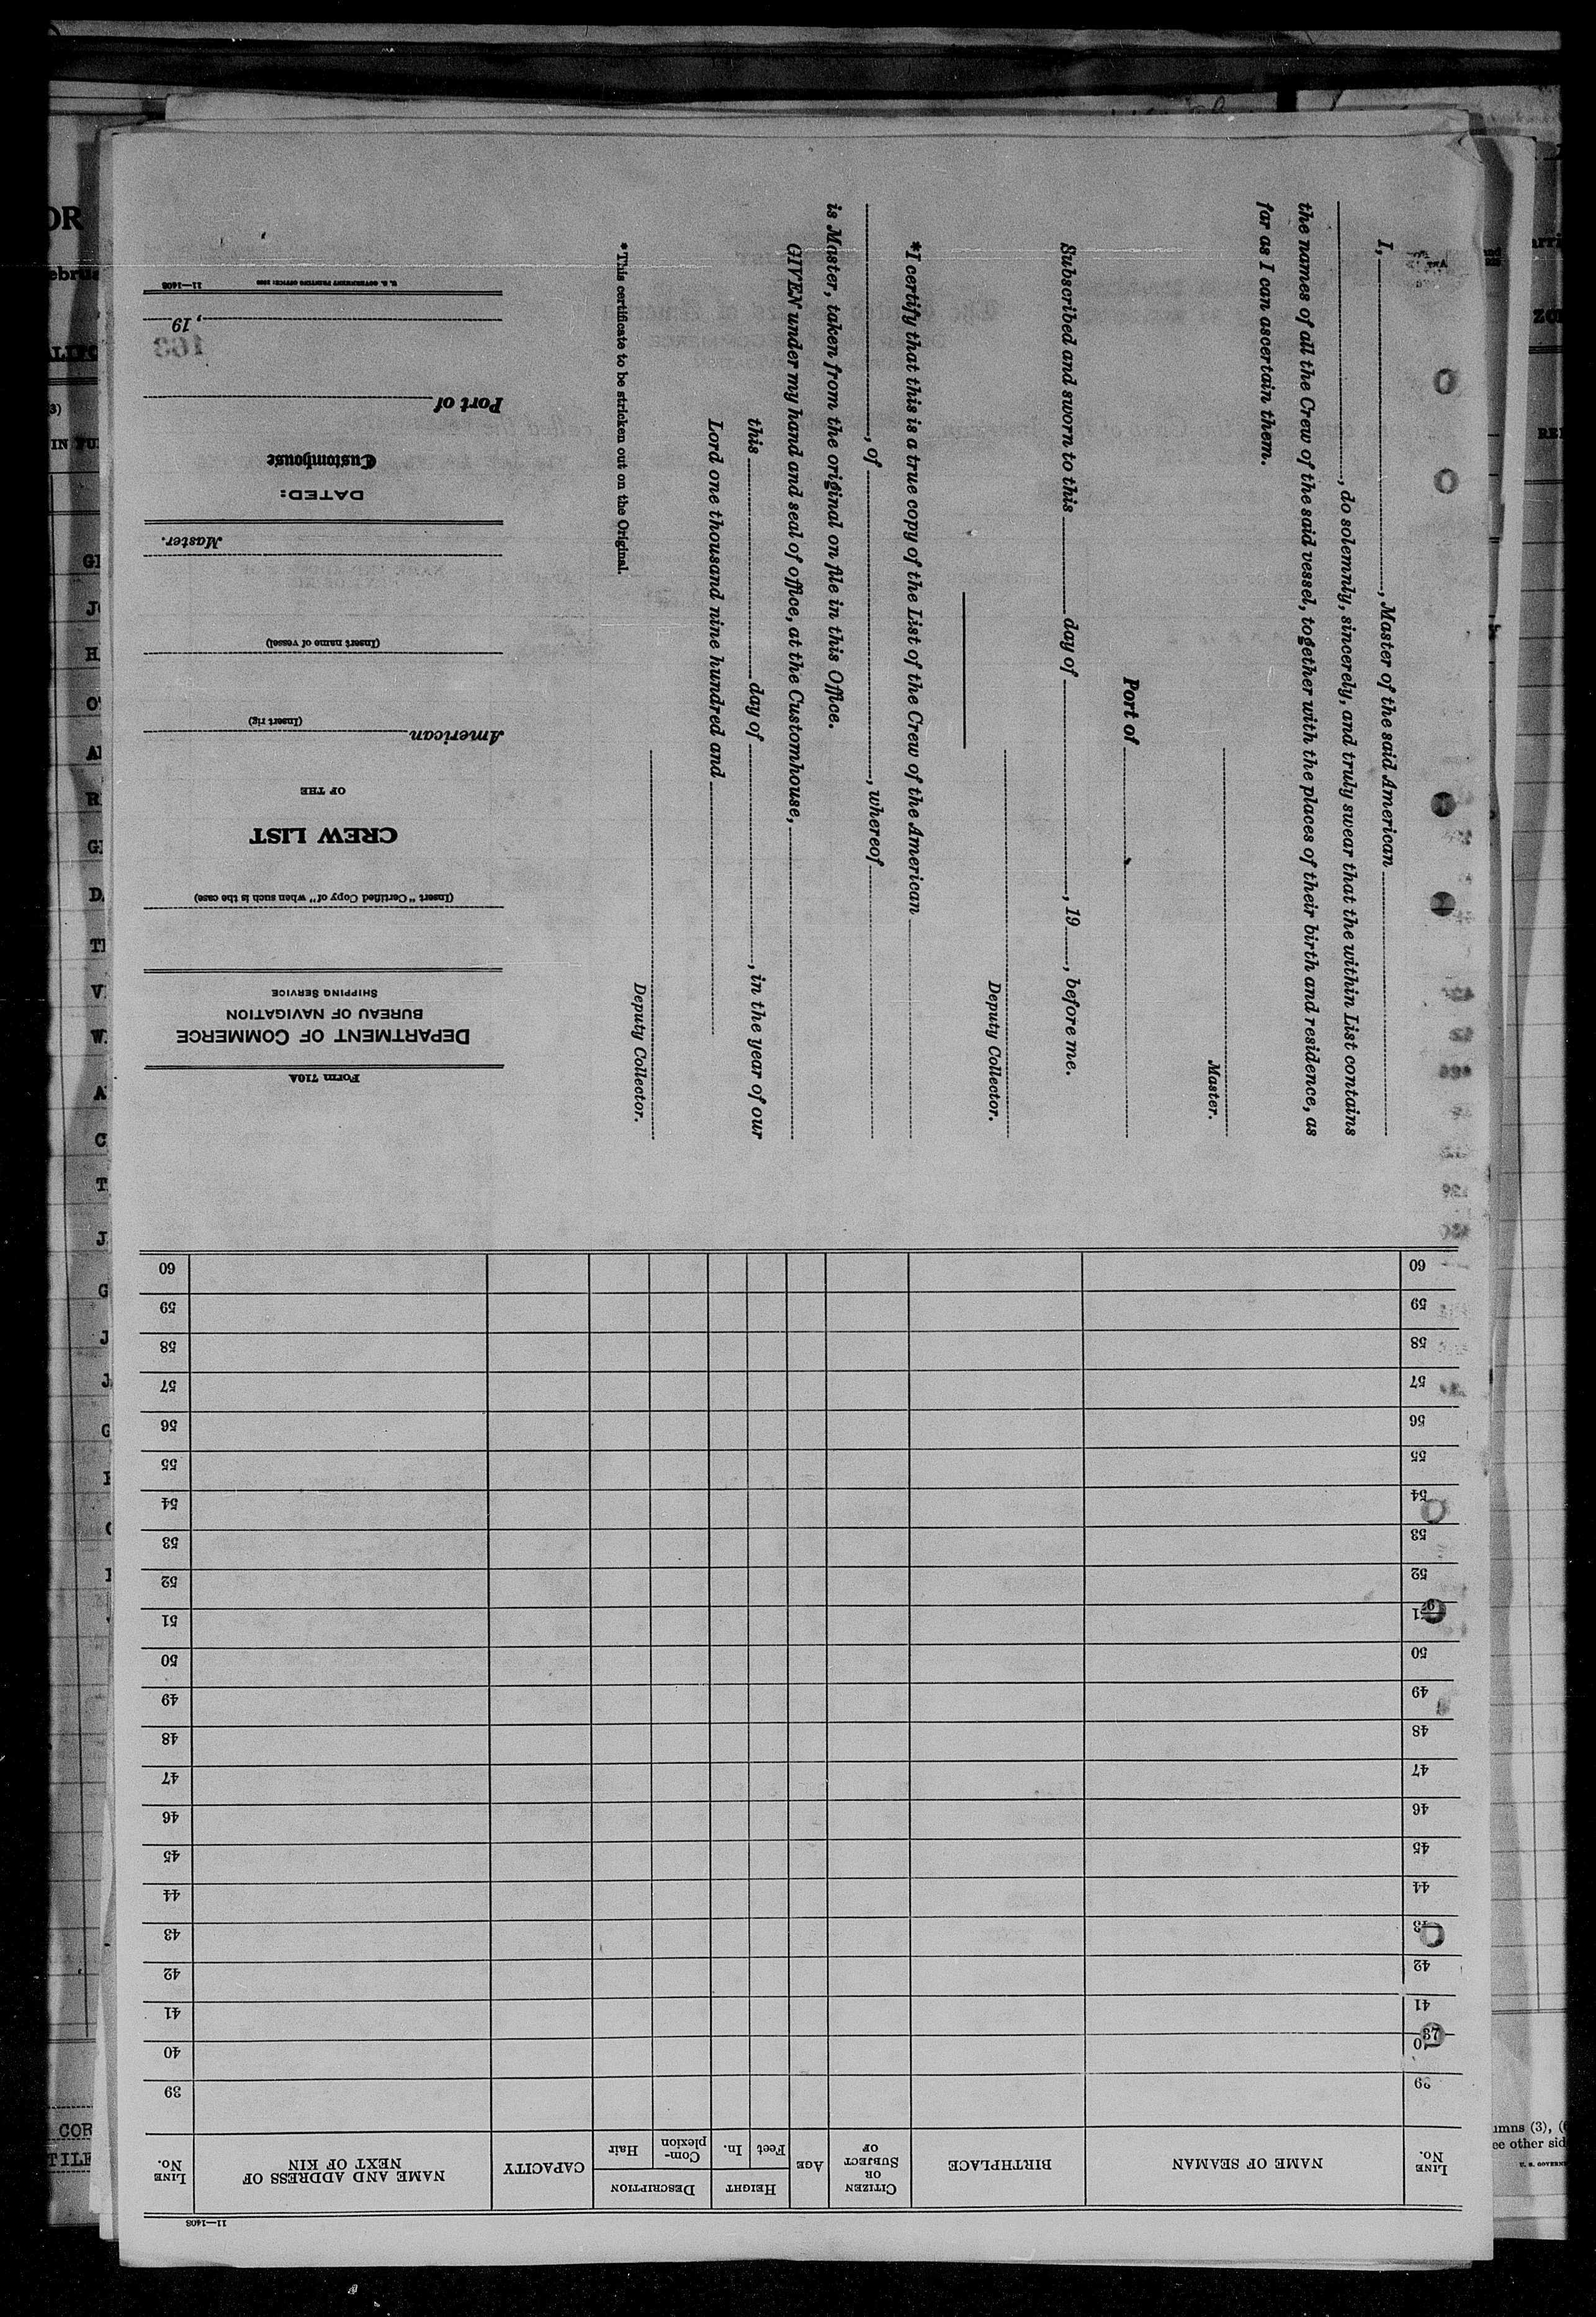 11—1408
LINE No.
NAME OF SEAMAN
BIRTHPLACE
CITIZEN OR SUBJECT OF
AGE
HEIGHT
Feet
In.
DESCRIPTION
Com-plexion
Hair
CAPACITY
NAME AND ADDRESS OF NEXT OF KIN
LINE No.
39 39
40
41 41
42 42
43 43
44 44
45 45
46 46
47 47
48 48
49 49
50 50
51
52 52
53 53
54 54
55 55
56 56
57 57
58 58
59 59
60 60
37
I, , Master of the said American
, do solemnly, sincerely, and truly swear that the within List contains
the names of all the Crew of the said vessel, together with the places of their birth and residence, as
far as I can ascertain them.
Master.
Port of
Subscribed and sworn to this day of , 19 , before me.
Deputy Collector.
*I certify that this is a true copy of the List of the Crew of the American
, of , whereof
is Master, taken from the original on file in this Office.
GIVEN under my hand and seal of office, at the Customhouse,
this day of , in the year of our
Lord one thousand nine hundred and
Deputy Collector.
*This certificate to be stricken out on the Original.
Form 710A
DEPARTMENT OF COMMERCE
BUREAU OF NAVIGATION
SHIPPING SERVICE
(Insert "Certified Copy of" when such is the case)
CREW LIST
OF THE
American
(Insert rig)
(Insert name of vessel)
Master.
DATED:
Customhouse
Port of
, 19
U. S. GOVERNMENT PRINTING OFFICE 11—1408
163
OR
IN FU
COR
TILE
umns (3), (
ee other sid